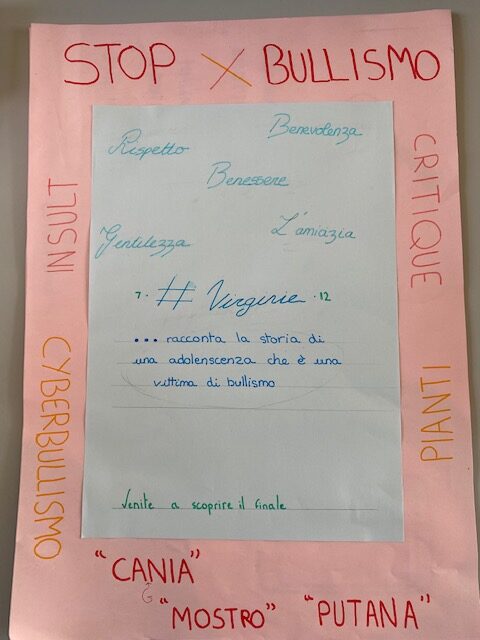 STOP X BULLISMO
Rispetto
Benevolenza
Benessere
Gentilezza
L'amiazia
INSULT
CRITIQUE
7. # Virginie .12
... racconta la storia di
una adolenscenza che è una
vittima di bullismo
CYBERBULLISMO
PIANTI
Venite a scoprire il finale
"CANIA"
G
"MOSTRO" "PUTANA"